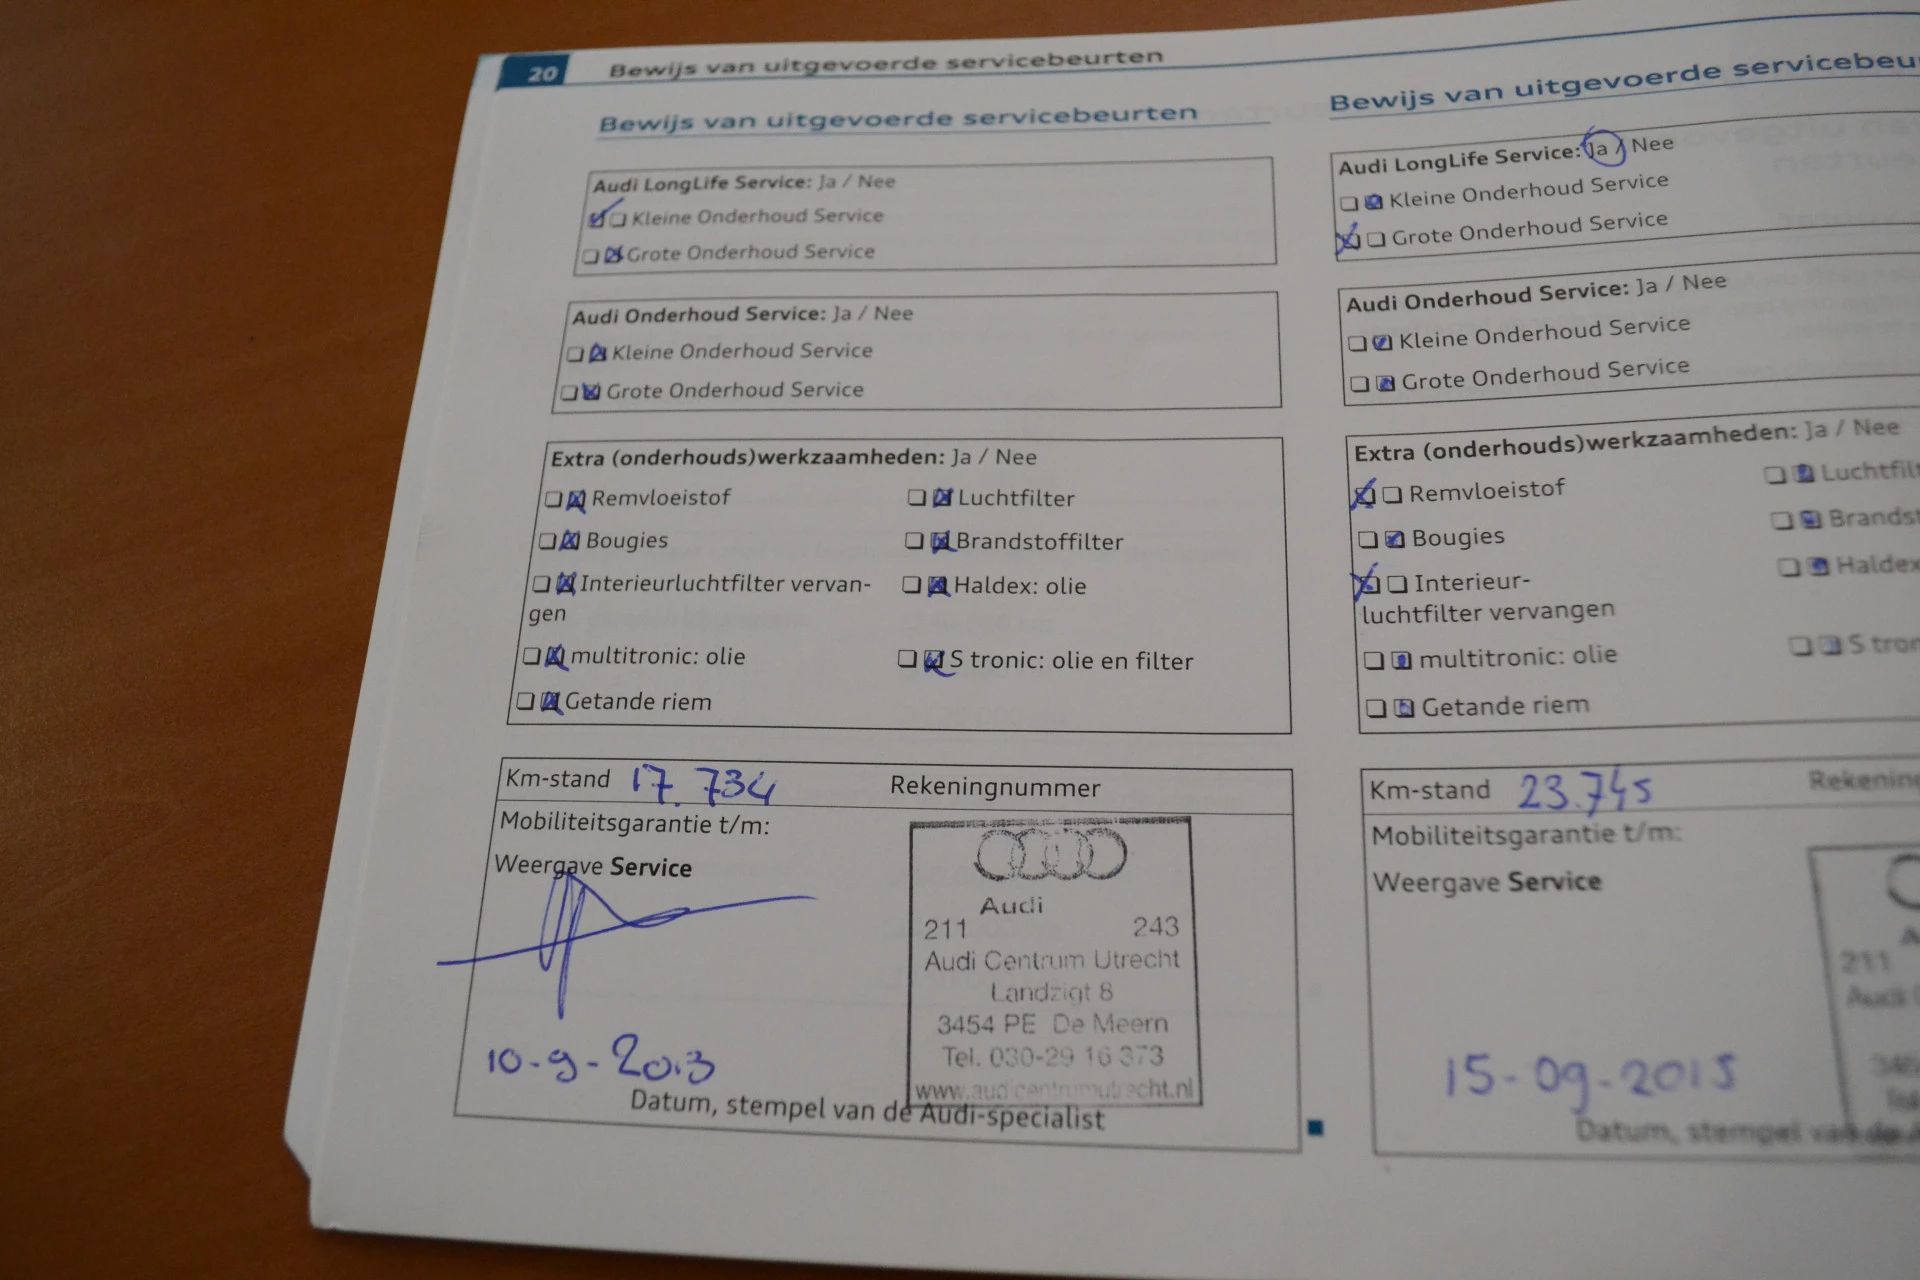 20 Bewijs van uitgevoerde servicebeurten
Bewijs van uitgevoerde servicebeurten
Audi LongLife Service: Ja / Nee
Kleine Onderhoud Service
Grote Onderhoud Service
Audi Onderhoud Service: Ja / Nee
Kleine Onderhoud Service
Grote Onderhoud Service
Extra (onderhouds)werkzaamheden: Ja / Nee
Remvloeistof Luchtfilter
Bougies Brandstoffilter
Interieurluchtfilter vervan- Haldex: olie
gen
multitronic: olie S tronic: olie en filter
Getande riem
Km-stand 17.734 Rekeningnummer
Mobiliteitsgarantie t/m:
Weergave Service
Audi
211 243
Audi Centrum Utrecht
Landzigt 8
3454 PE De Meern
Tel. 030-29 16 373
www.audicentrumutrecht.nl
10-9-2013
Datum, stempel van de Audi-specialist
Bewijs van uitgevoerde servicebeu
Audi LongLife Service: Ja / Nee
Kleine Onderhoud Service
Grote Onderhoud Service
Audi Onderhoud Service: Ja / Nee
Kleine Onderhoud Service
Grote Onderhoud Service
Extra (onderhouds)werkzaamheden: Ja / Nee
Remvloeistof Luchtfilt
Bougies Brandst
Interieur- Haldex
luchtfilter vervangen
multitronic: olie S tron
Getande riem
Km-stand 23.745 Rekening
Mobiliteitsgarantie t/m:
Weergave Service
211
Audi
15-09-2015
Datum, stempel van de